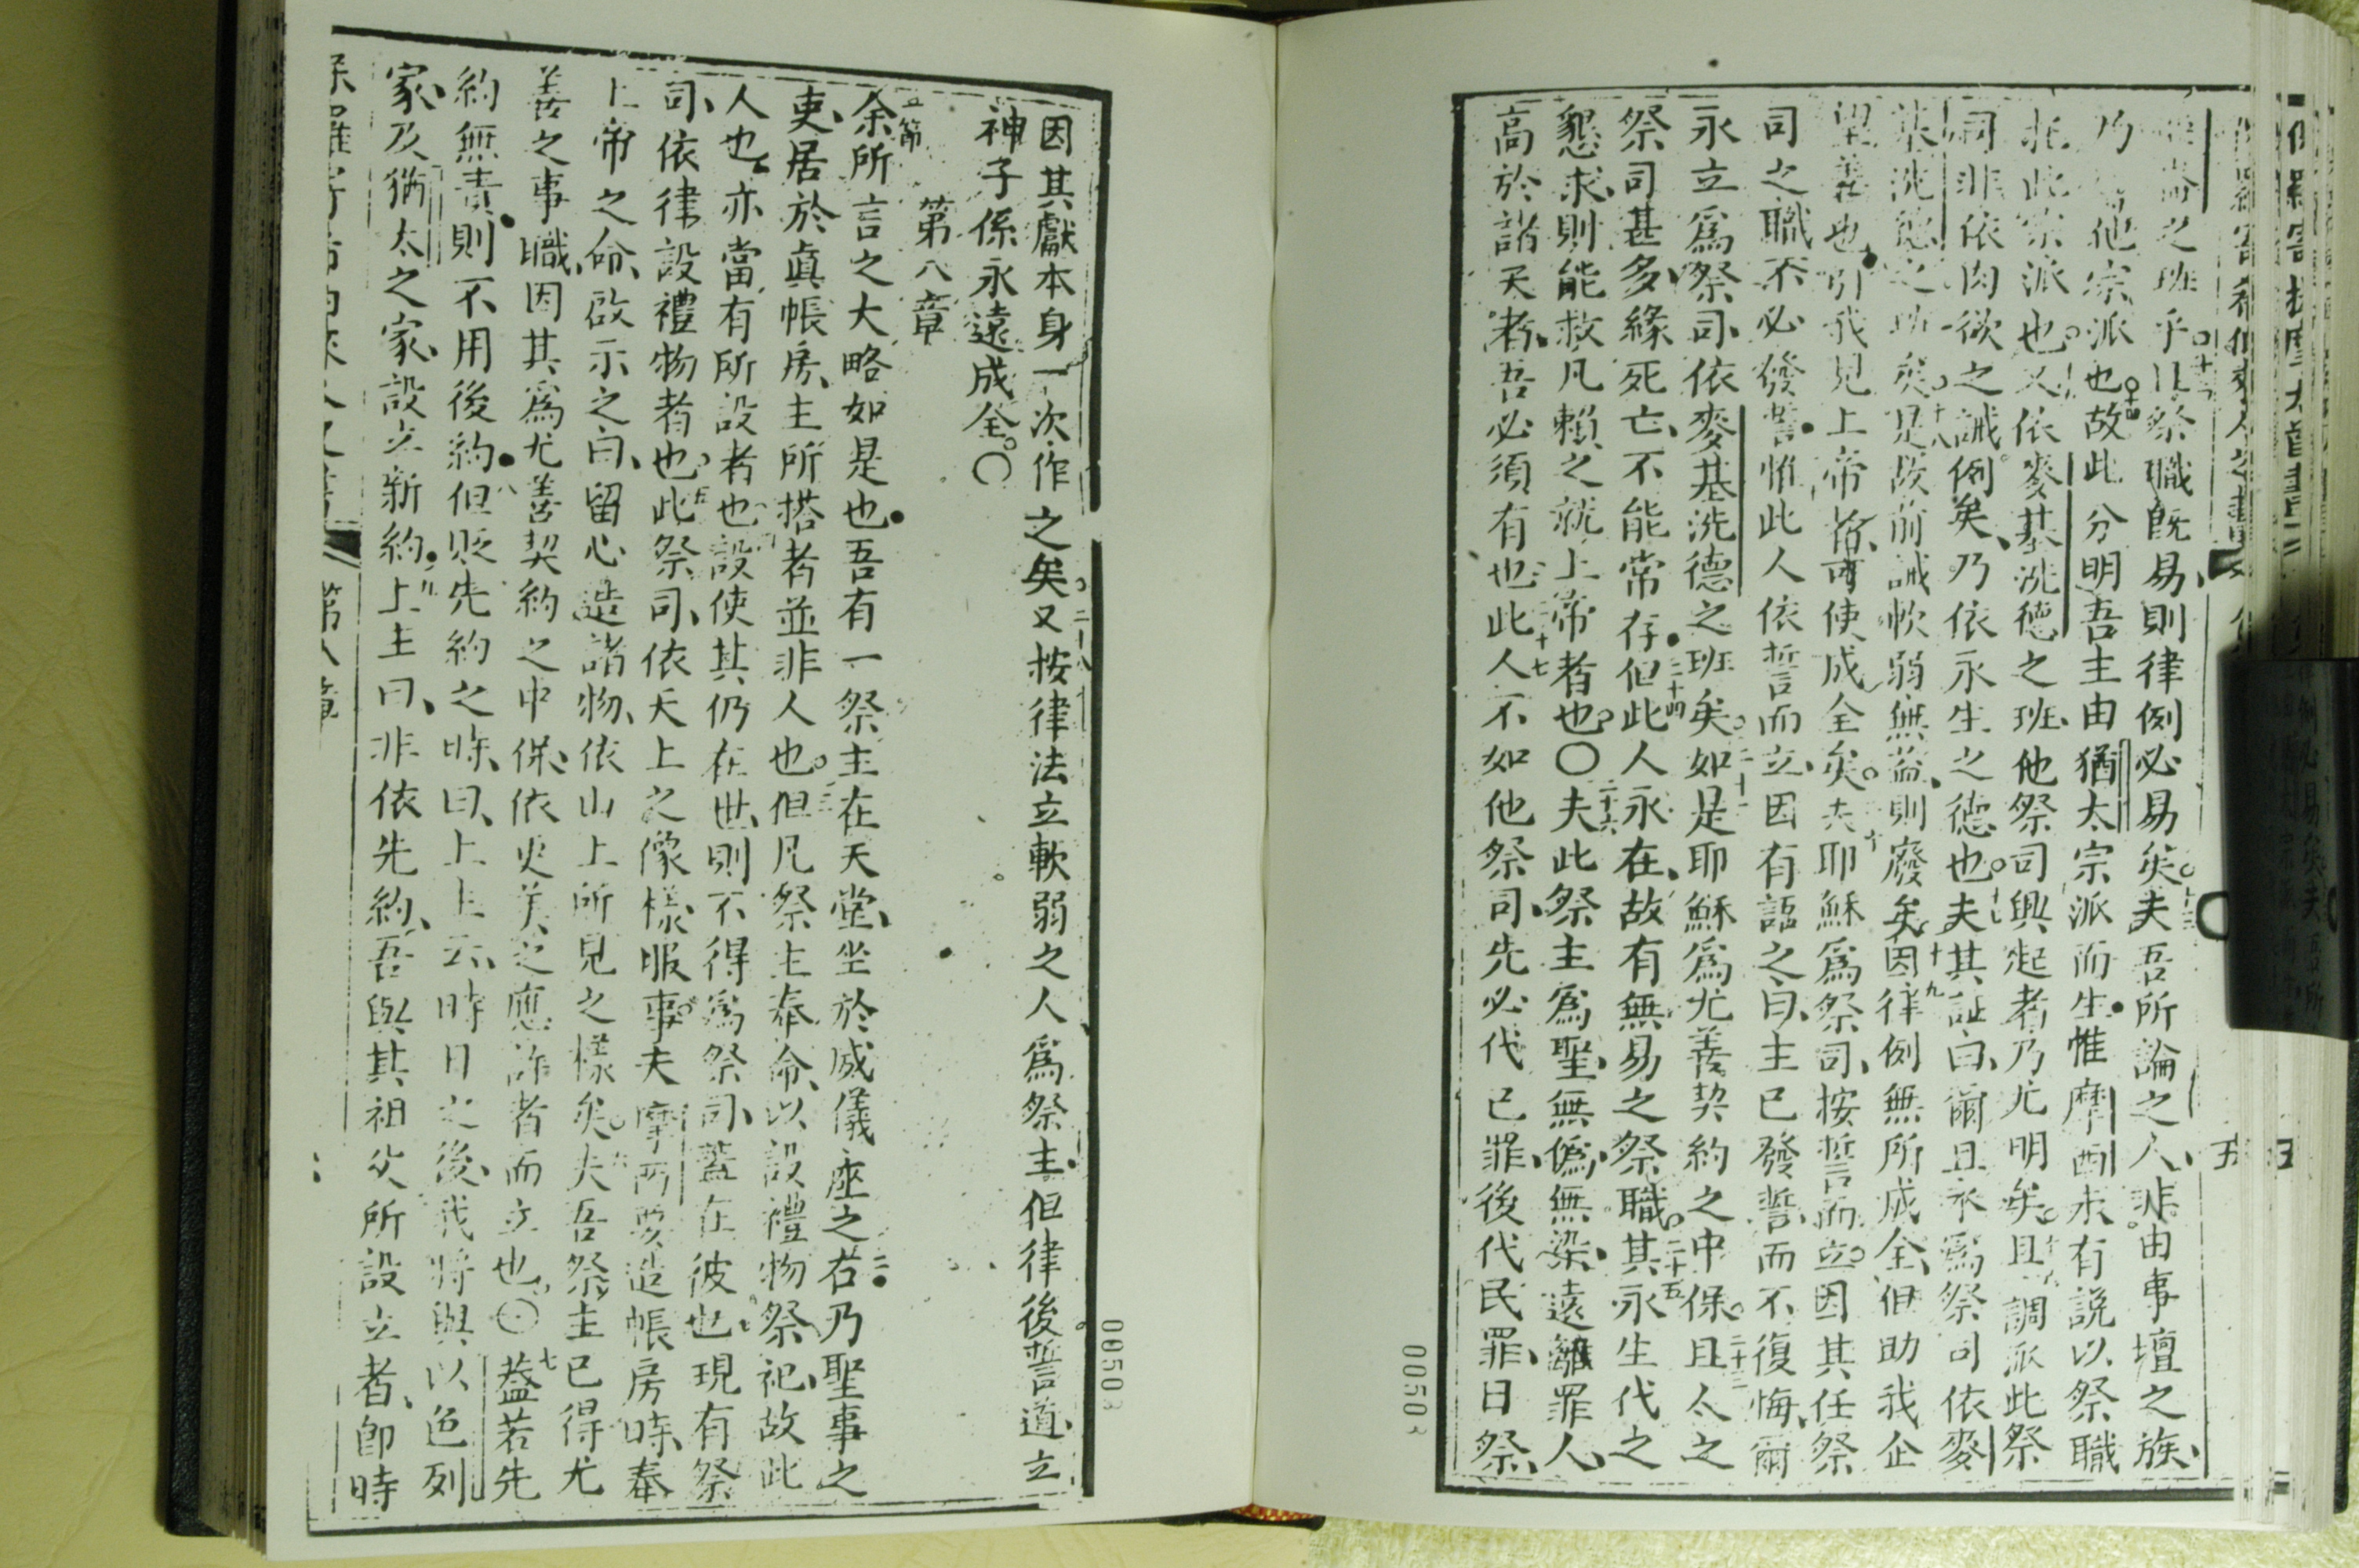 之班乎十二祭職既易則律例必易矣十三夫吾所論之人非由事壇之族
乃他宗派也十四故此分明吾主由猶太宗派而生惟摩西未有說以祭職
此宗派也又依麥基洗德之班他祭司興起者乃尤明矣且調派此祭
司非依肉欲之誡例矣乃依永生之德也十七夫其証曰爾且永爲祭司依麥
基洗德之班矣十八是故前誡軟弱無益則廢矣十九因律例無所成全但助我企
望善也引我見上帝皆可使成全矣夫耶穌爲祭司按誓言而立因其任祭
司之職不必發誓惟此人依誓言而立因有語之曰主已發誓而不復悔爾
永立爲祭司依麥基洗德之班矣二十二如是耶穌爲尤善契約之中保二十三且人之
祭司甚多緣死亡不能常存二十四但此人永在故有無易之祭職二十五其永生代之
懇求則能救凡賴之就上帝者也〇二十六夫此祭主爲聖無僞無染遠離罪人
高於諸天者吾必須有也二十七此人不如他祭司先必代己罪後代民罪日祭
五
00503
因其獻本身一次作之矣二十八又按律法立軟弱之人爲祭主但律後誓言道立
神子係永遠成全〇
第八章
一節余所言之大略如是也吾有一祭主在天堂坐於威儀座之右二乃聖事之
吏居於眞帳房主所搭者並非人也三但凡祭主奉命以設禮物祭祀故此
人也亦當有所設者也四設使其仍在世則不得爲祭司蓋在彼也現有祭
司依律設禮物者也五此祭司依天上之像樣服事夫摩西要造帳房時奉
上帝之命啟示之曰留心造諸物依山上所見之樣矣六夫吾祭主已得尤
善之事職因其爲尤善契約之中保依更美之應許者而立也〇七蓋若先
約無責則不用後約八但貶先約之時曰上主云時日之後我將與以色列
家及猶太之家設立新約九上主曰非依先約吾與其祖父所設立者即時
第八章
00503